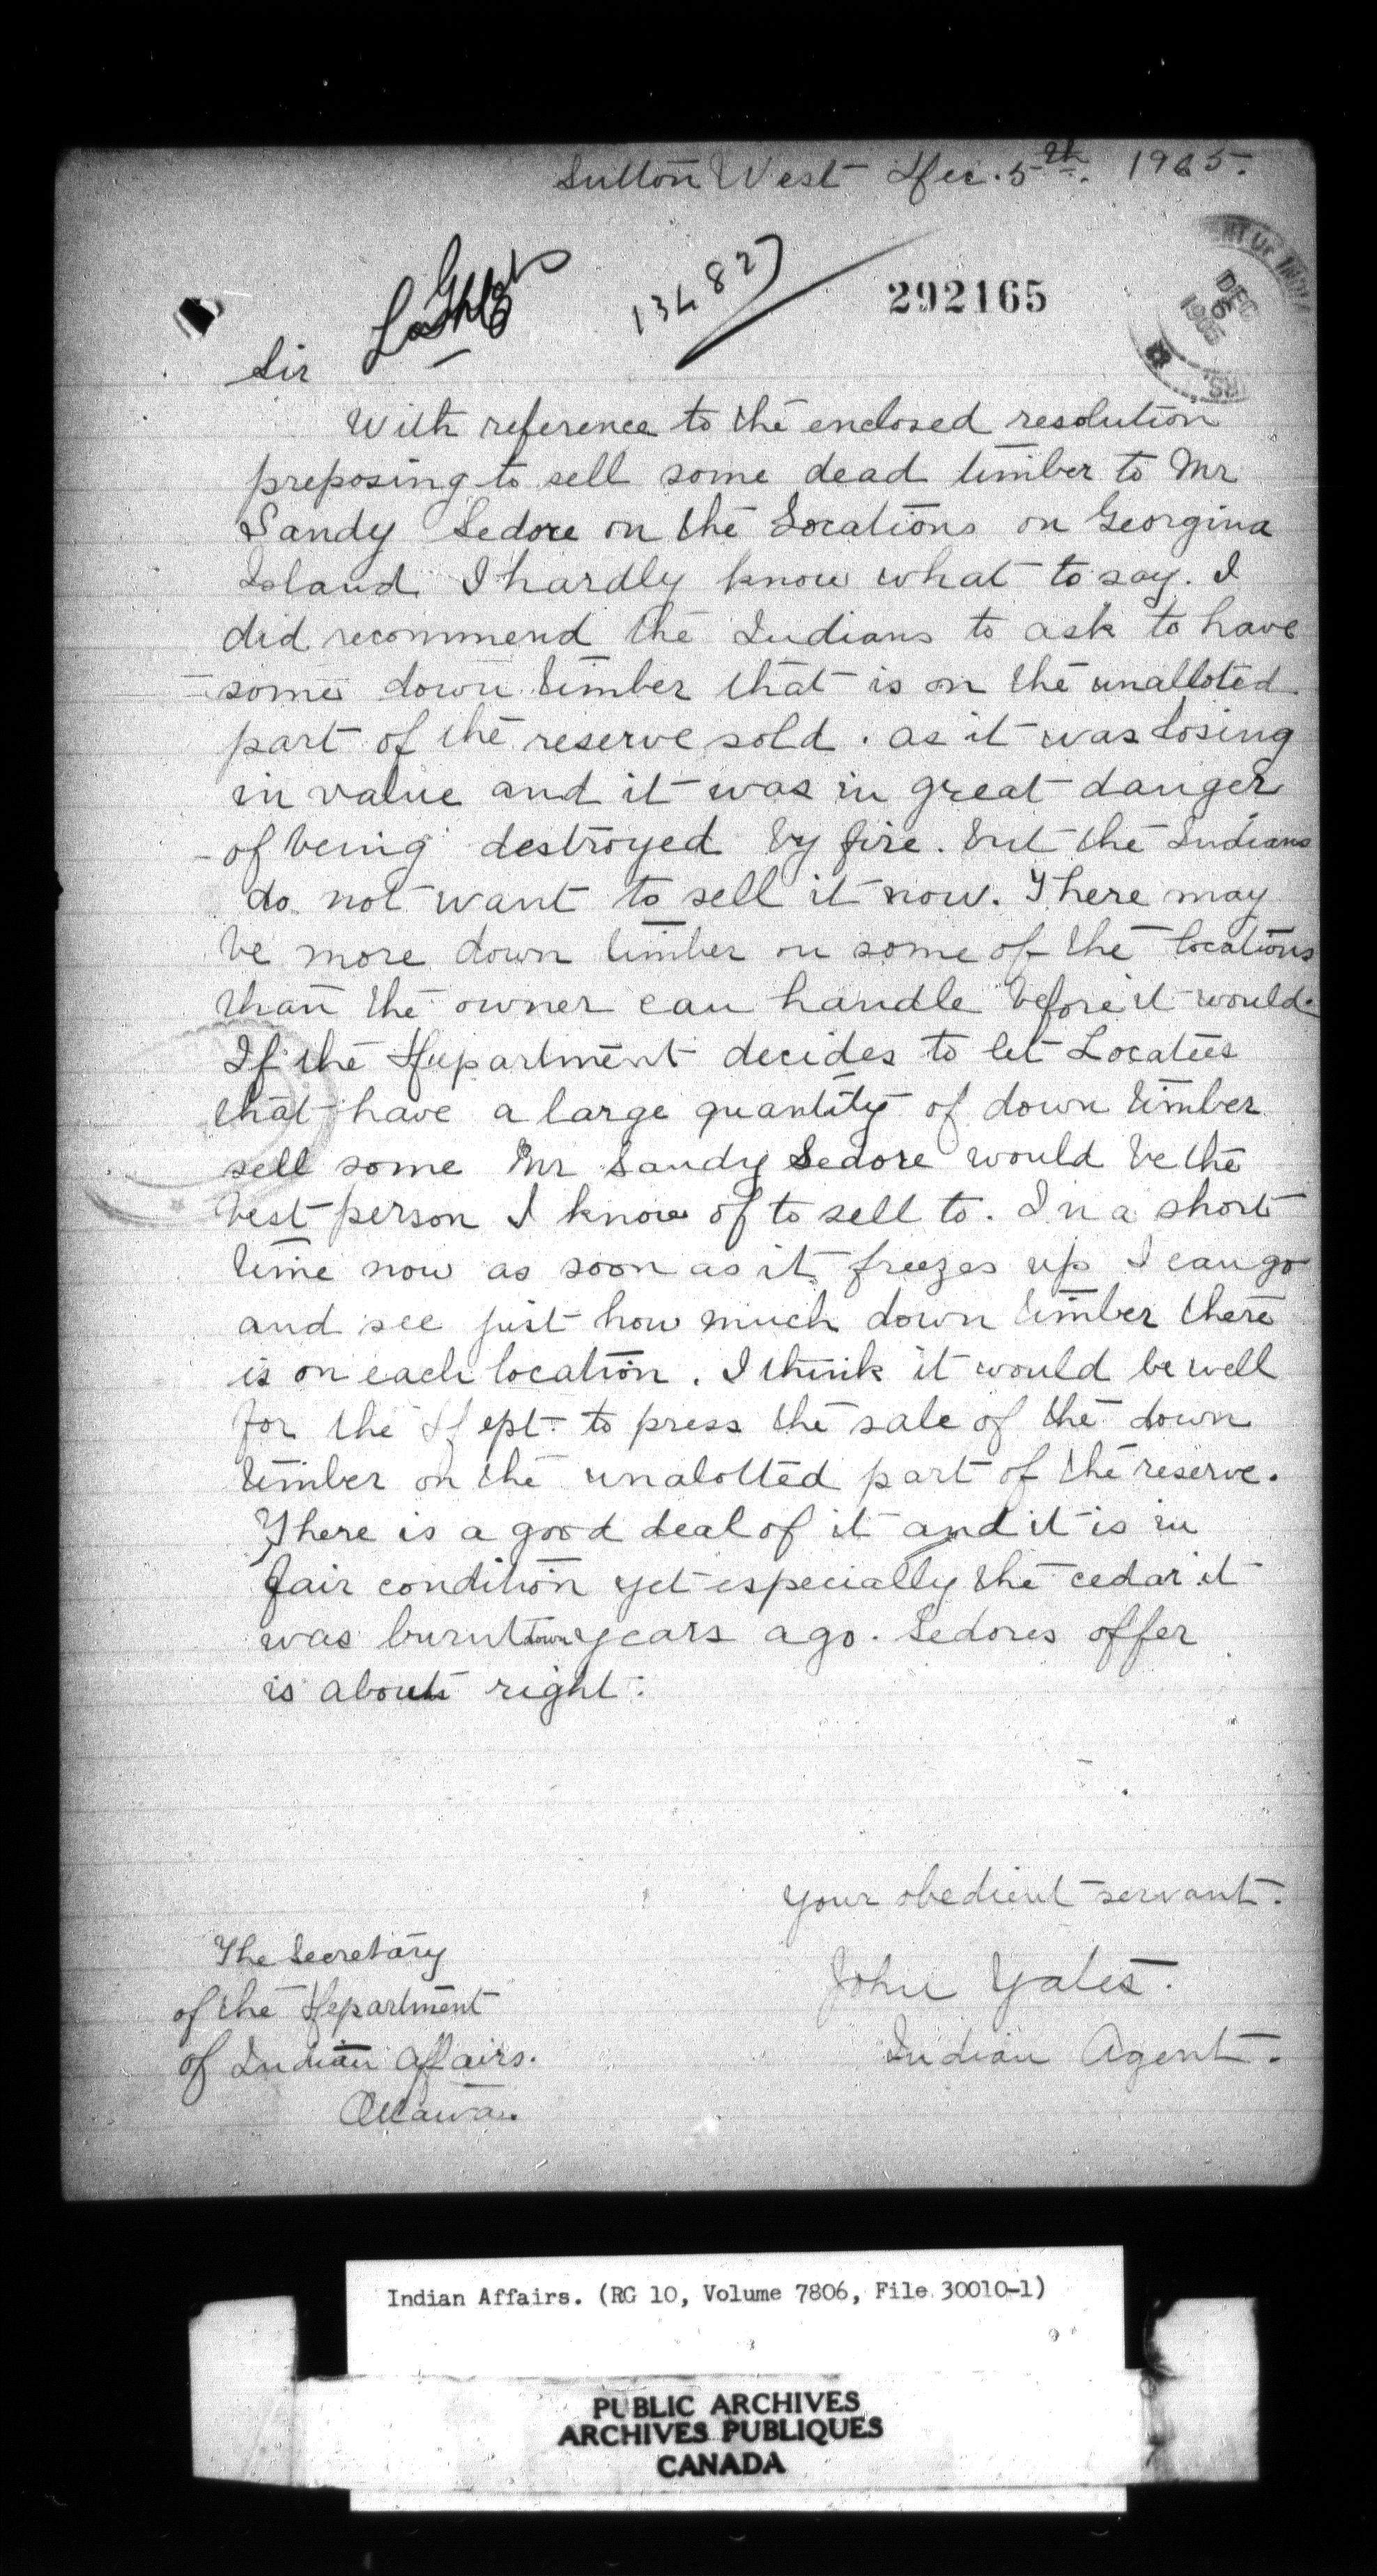 Sutton West Dec. 5th. 1905.
13482
292165
DEC
6
1905
Sir
With reference to the enclosed resolution
preposing to sell some dead timber to Mr
Sandy Sedore on the Locations on Georgina
Island I hardly know what to say. I
did recommend the Indians to ask to have
some down timber that is on the unalloted
part of the reserve sold. as it was losing
in value and it was in great danger
of being destroyed by fire. but the Indians
do not want to sell it now. There may
be more down timber on some of the locations
than the owner can handle before it would.
If the Department decides to let Locatees
that have a large quantity of down timber
sell some Mr Sandy Sedore would be the
best person I know of to sell to. In a short
time now as soon as it freezes up I can go
and see just how much down timber there
is on each location. I think it would be well
for the Dept. to press the sale of the down
timber on the unalotted part of the reserve.
There is a good deal of it and it is in
fair condition yet especially the cedar it
was burnt down years ago. Sedores offer
is about right.
your obedient servant.
The Secretary
John Yates.
of the Department
of Indian Affairs.
Indian Agent.
Ottawa.
Indian Affairs. (RG 10, Volume 7806, File 30010-1)
PUBLIC ARCHIVES
ARCHIVES PUBLIQUES
CANADA